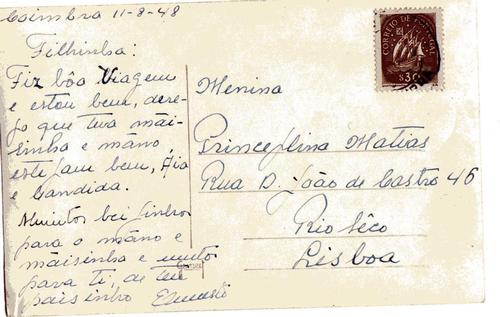 Coimbra 11-8-48
Filhinha:
Fiz bôa Viagem
e estou bem, dese-
jo que tua mãi-
sinha e mâno,
estejam bem, Aia
e Candida.
Muitos beijinhos
para o mâno e
mãisinha e muito
para ti, de teu
paisinho
CORREIO DE PORTUGAL
$30
Menina
Princeplina Matias
Rua D. João de Castro 46
Rio Sêco
Lisboa